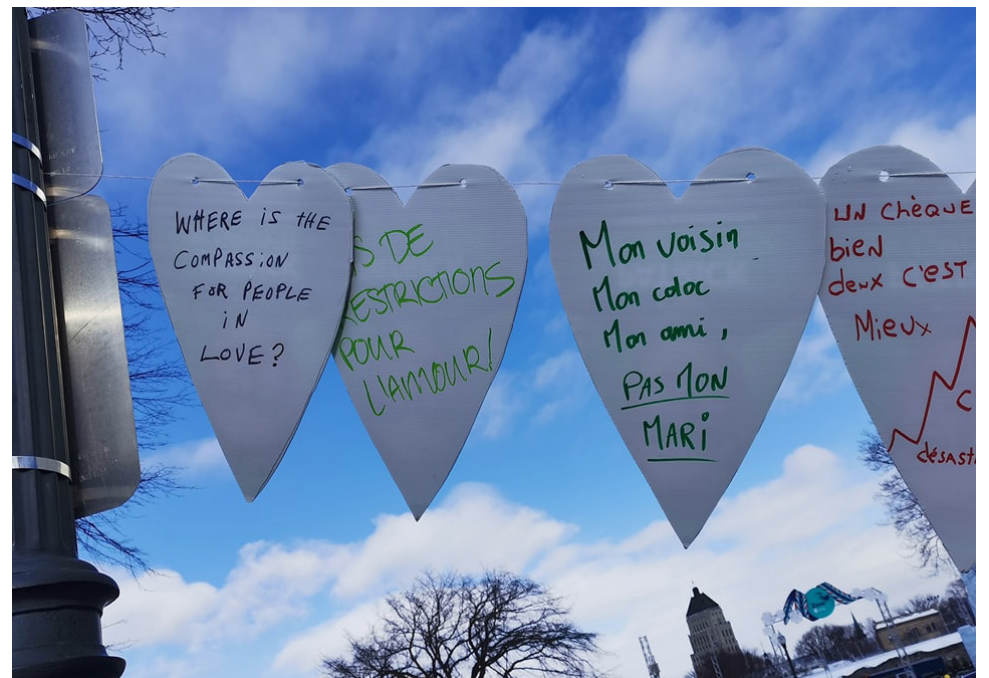 WHERE iS tHE
COMPASSiON
FOR PEOPLE
iN
LOVE?
DE
POUR
L'AMOUR!
Mon voisin
Mon coloc
Mon ami,
PAS MON
MARi
UN CHèQUE
biEN
deux C'EST
MiEUX